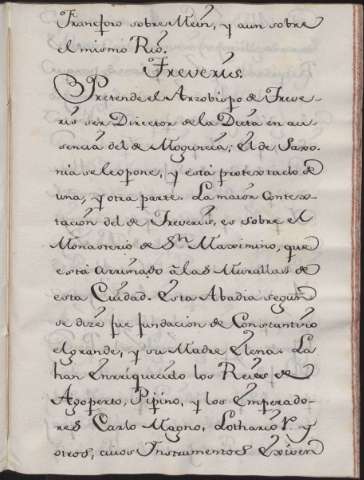 Francfort sobre Mein, y aun sobre
el mismo Rio.
Treveris.
Pretende el Arzobispo de Treve-
ris ser Director de la Dieta en au-
sencia del de Moguncia; el de Saxo-
nia se le opone, y está protextado de
una, y otra parte. La maior Contex-
tación del de Treveris, es sobre el
Monasterio de Sn. Maximino, que
está arrimado â las Murallas de
esta Ciudad. Esta Abadia segun
se dize fue fundacion de Constantino
el grande, y su Madre Elena. La
han Enrriquecido los Reies de
Agoperto, Pipino, y los Emperado-
res Carlo Magno, Lothario V. y
otros, cuios Instrumentos Exiven